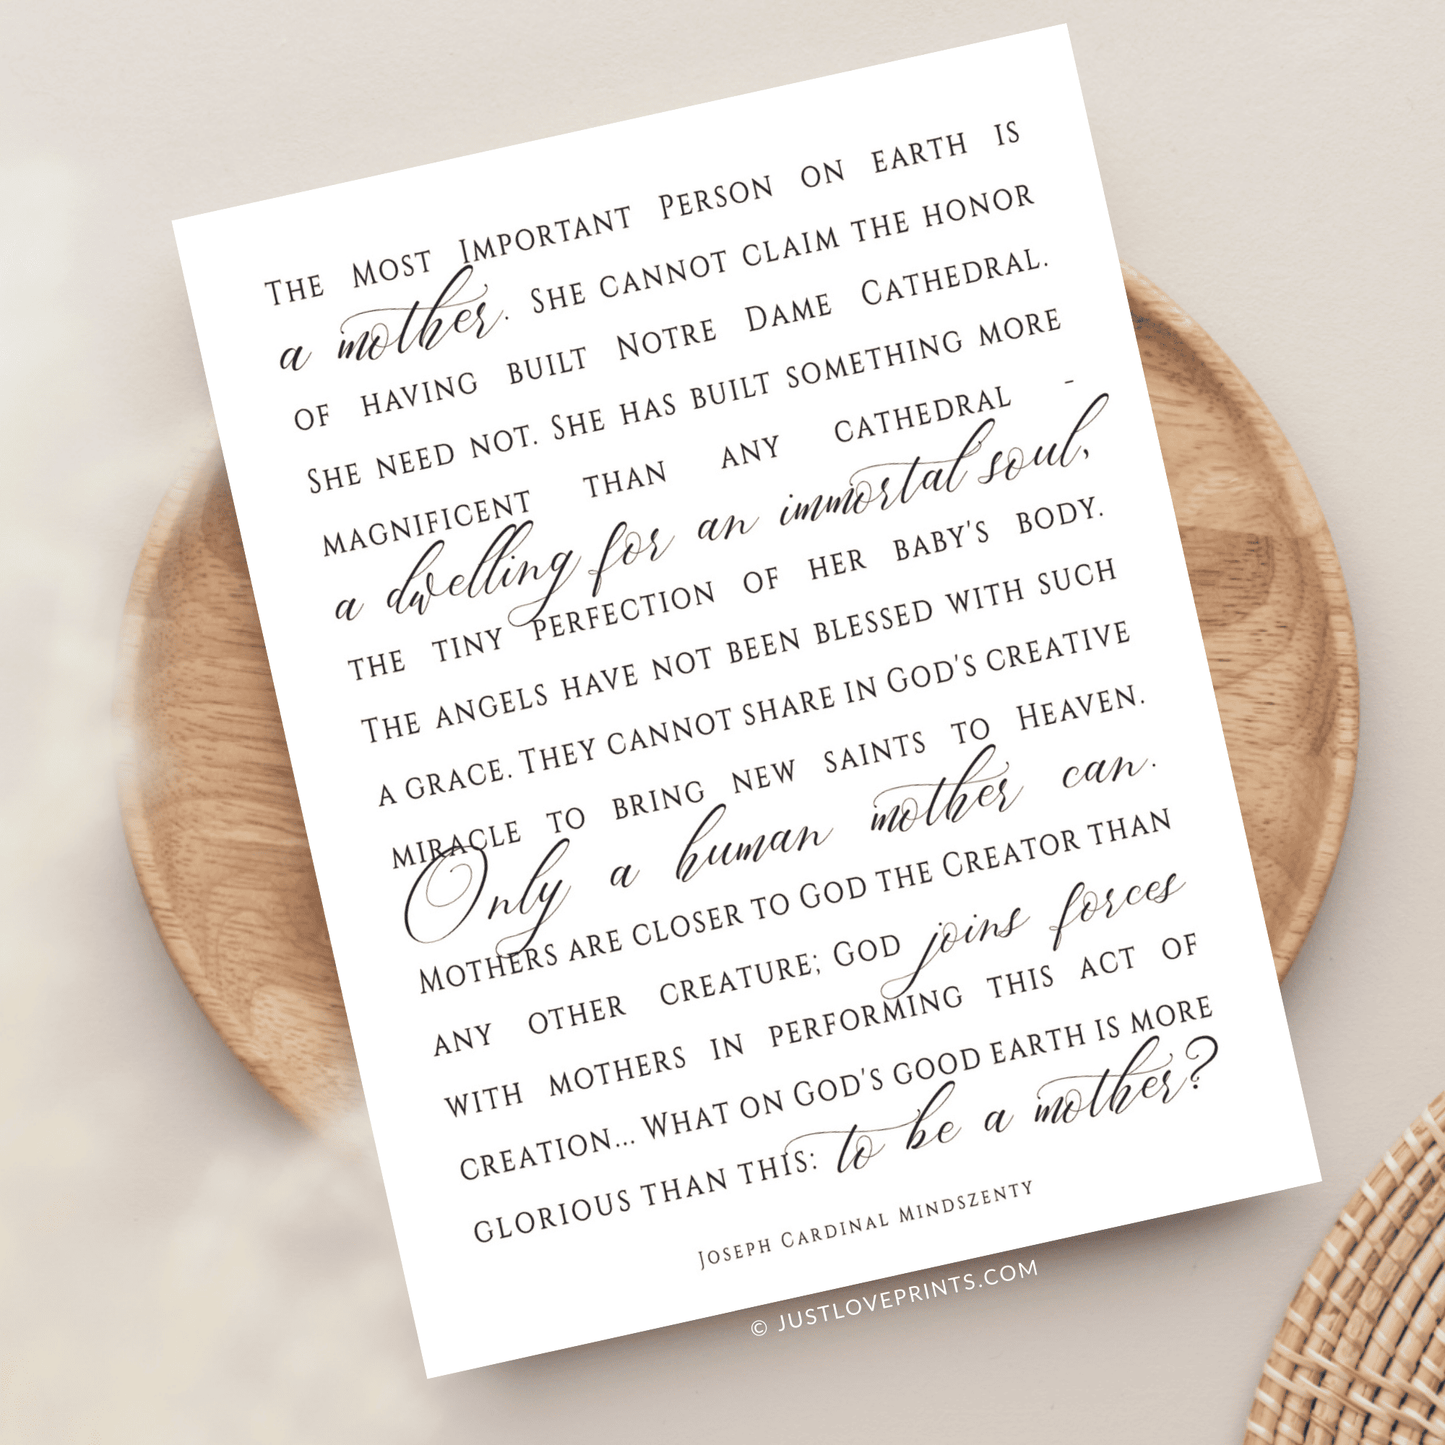 The Most Important Person on earth is
a mother. She cannot claim the honor
of having built Notre Dame Cathedral.
She need not. She has built something more
magnificent than any cathedral -
a dwelling for an immortal soul,
the tiny perfection of her baby's body.
The angels have not been blessed with such
a grace. They cannot share in God's creative
miracle to bring new saints to Heaven.
Only a human mother can.
Mothers are closer to God the Creator than
any other creature; God joins forces
with mothers in performing this act of
creation... What on God's good earth is more
glorious than this: to be a mother?
Joseph Cardinal Mindszenty
© JUSTLOVEPRINTS.COM